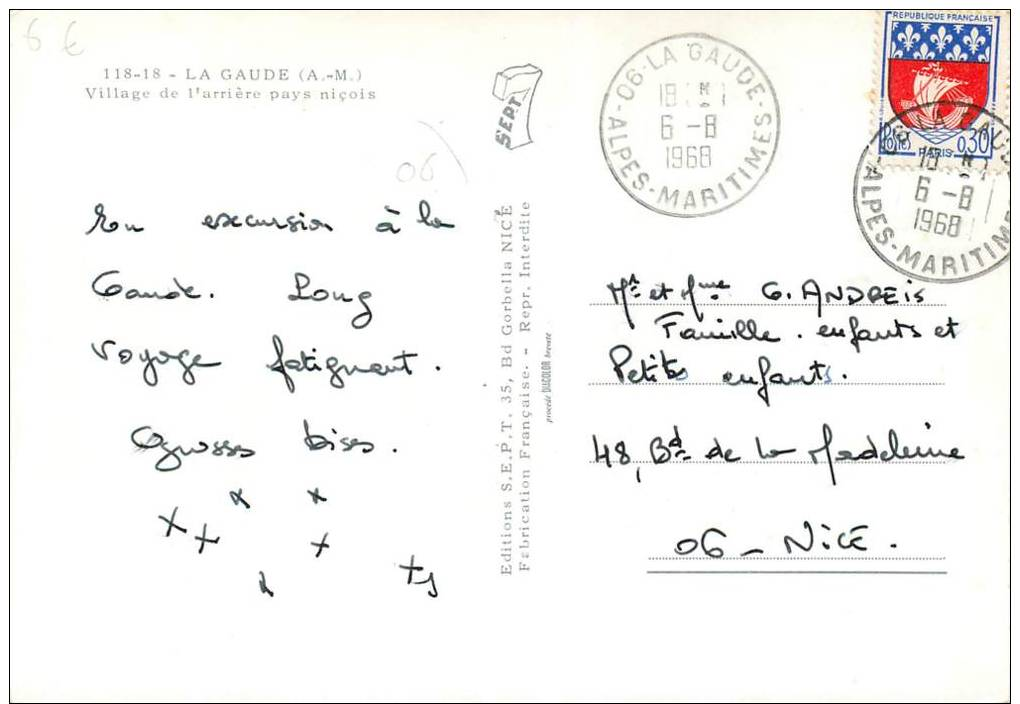 6 €
118-18 - LA GAUDE (A.-M.)
Village de l'arrière pays niçois
06
En excursion à la
Gaude. Long
voyage fatiguant.
Grosses bises.
S'EPT
Editions S.E.P.T. 35, Bd Gorbella NICE
Fabrication Française. - Repr. Interdite
procédé DUGOLOR breveté
06-LA GAUDE-
18 H
6 -8
1968
-ALPES-MARITIMES
REPUBLIQUE FRANÇAISE
Postes
PARIS
0,30
06-LA GAUDE
18 H
6 -8
1968
ALPES-MARITIMES
Mr et Mme G. ANDREIS
Famille. enfants et
Petits enfants.
48, Bd de la Madeleine
06 - NICE.